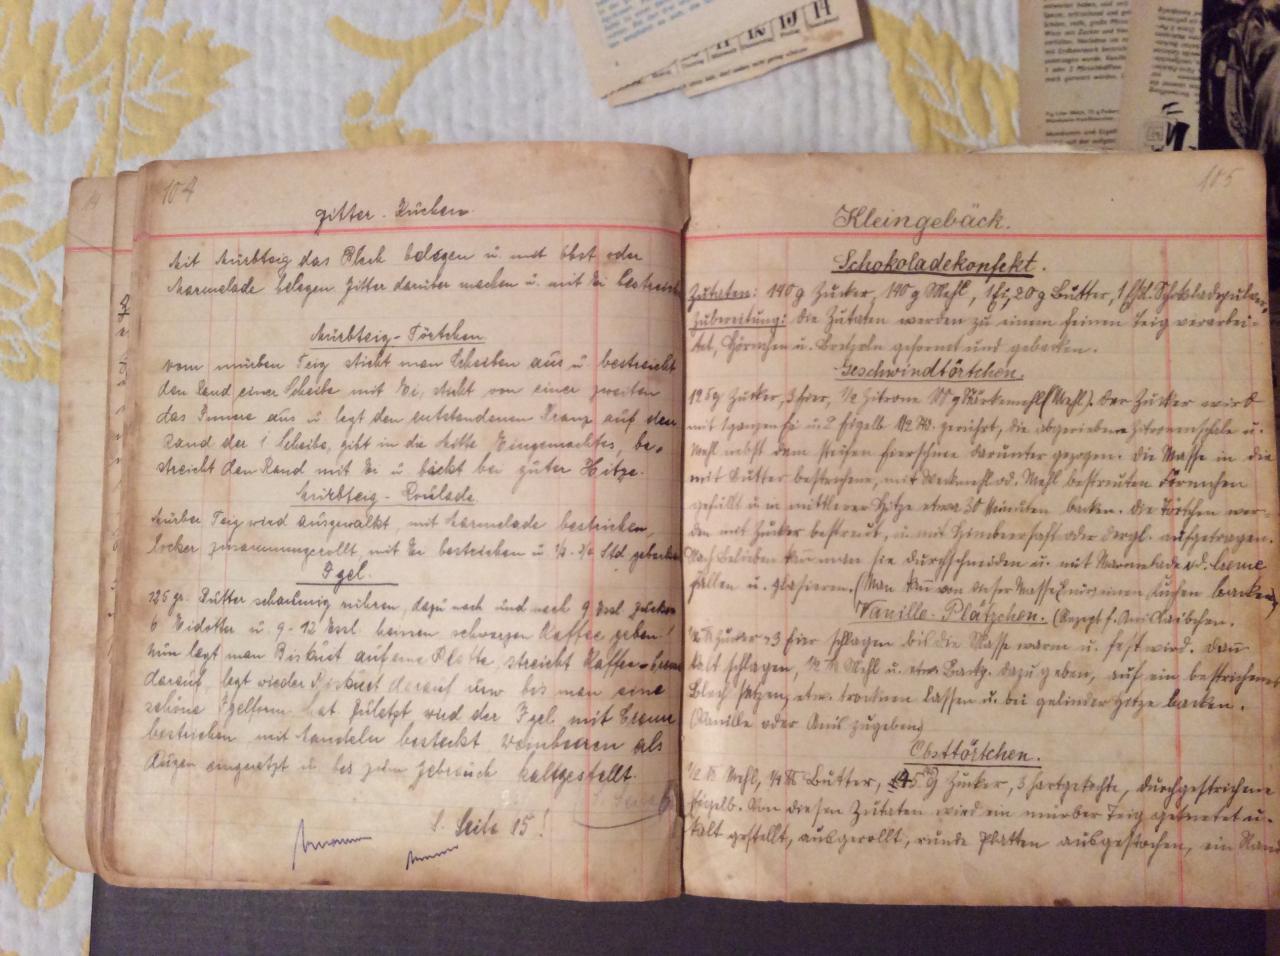 104
Gitter-Kuchen.
Mit Mürbteig das Blech belegen u. mit Obst oder
Marmelade belegen Gitter darüber machen u. mit Ei bestreichen
Mürbteig-Törtchen
vom mürben Teig sticht man Scheiben aus u. bestreicht
den Rand einer Scheibe mit Ei, sticht von einer zweiten
das Innere aus u. legt den entstandenen Kranz auf den
Rand der 1 Scheibe, gibt in die Mitte Eingemachtes, be-
streicht den Rand mit Ei u. bäckt bei guter Hitze.
Mürbteig-Roulade.
Mürber Teig wird ausgewalkt, mit Marmelade bestrichen,
locker zusammengerollt, mit Ei bestrichen u. 1/2 - 3/4 Std gebacken
Igel.
125 gr. Butter schaumig rühren, dazu nach und nach 9 Essl Zucker
6 Eidotter u. 9-12 Essl. schwarzen Kaffee geben!
Nun legt man Biskuit auf eine Platte, streicht Kaffee-Creme
darauf, legt wieder Biskuit darauf usw bis man eine
schöne Igelform hat Zuletzt wird der Igel mit Creme
bestrichen mit Mandeln besteckt Weinbeeren als
Augen eingesetzt u. bis zum Gebrauch kaltgestellt.
S. Seite 6
S. Seite 15!
105
Kleingebäck.
Schokoladekonfekt.
Zutaten: 140 g Zucker, 140 g Mehl, 1 Ei, 20 g Butter, 1 Schokoladepulver.
Zubereitung: Die Zutaten werden zu einem feinen Teig verarbei-
tet, Hörnchen u. Bretzeln geformt und gebacken.
Geschwindtörtchen.
125 g Zucker, 3 Eier, 1/2 Zitrone g Stärkemehl (Mehl). Der Zucker wird
mit 1 ganzen Ei u. 2 Eigelb 1/2 Std. gerührt, die abgeriebene Zitronenschale u.
Mehl nebst dem steifen Eierschnee darunter gezogen. Die Masse in die
mit Butter bestrichene, mit Weckmehl od. Mehl bestreuten Förmchen
gefüllt u. in mittlerer Hitze etwa 30 Minuten backen. Die Törtchen wer-
den mit Zucker bestreut, u. mit Himbeersaft oder dergl. aufgetragen.
Nach Belieben kann man sie durchschneiden u. mit Marmelade od. Creme
füllen u. glasieren. (Man kann von dieser Masse auch einen Kuchen backen)
Vanille-Plätzchen. (Rezept f. Anis Laibchen.
1/2 ℔ Zucker u. 3 Eier schlagen bis die Masse warm u. fest wird. Dann
kalt schlagen, 1/2 ℔ Mehl u. etw. Backp. dazu geben, auf ein bestrichenes
Blech setzen, etw. trocknen lassen u. bei gelinder Hitze backen.
(Vanille oder Anis zugeben)
Obsttörtchen.
1/2 ℔ Mehl, 1/4 ℔ Butter, g Zucker, 3 hartgekochte, durchgestrichene
Eigelb. Von diesen Zutaten wird ein mürber Teig geknetet u.
kalt gestellt, ausgerollt, runde Platten ausgestochen, ein Rand